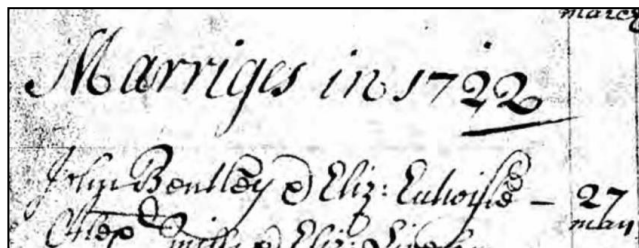 march
Marriges in 1722
John Bentley & Eliz: Entwisle – 27
may
& Eliz: